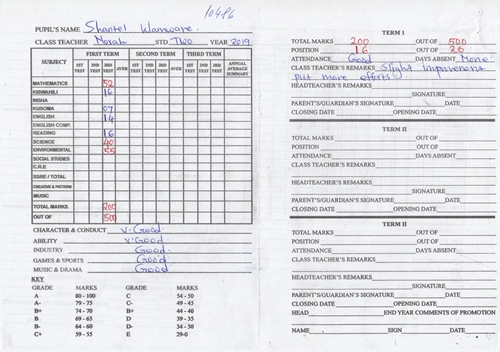 10486
PUPIL'S NAME Shantel Wamware.
CLASS TEACHER Norah STD Two YEAR 2019
SUBJECT FIRST TERM SECOND TERM THIRD TERM ANNUAL AVERAGE SUMMARY
1ST TEST 2ND TEST 3RD TEST AVER 1ST TEST 2ND TEST 3RD TEST AVER 1ST TEST 2ND TEST 3RD TEST AVER
MATHEMATICS 52
KISWAHILI 16
INSHA
KUSOMA 07
ENGLISH 14
ENGLISH COMP.
READING 16
SCIENCE 40
ENVIRONMENTAL 55
SOCIAL STUDIES
C.R.E
SSRE / TOTAL
CREATIVE & PATTERN
MUSIC
TOTAL MARKS 200
OUT OF 500
CHARACTER & CONDUCT V. Good
ABILITY V. Good
INDUSTRY Good.
GAMES & SPORTS Good
MUSIC & DRAMA Good
KEY
GRADE MARKS GRADE MARKS
A 80 - 100 C 54 - 50
A- 79- 75 C- 49 - 45
B+ 74 - 70 B+ 44 - 40
B 69 - 65 D 39 - 35
B- 64 - 60 D- 34 - 30
C+ 59 - 55 E 29-0
TERM 1
TOTAL MARKS 200 OUT OF 500
POSITION 16 OUT OF 26
ATTENDANCE Good DAYS ABSENT None
CLASS TEACHER'S REMARKS Slight improvement
put more efforts
HEADTEACHER'S REMARKS
SIGNATURE
PARENT'S/GUARDIAN'S SIGNATURE DATE
CLOSING DATE OPENING DATE
TERM II
TOTAL MARKS OUT OF
POSITION OUT OF
ATTENDANCE DAYS ABSENT
CLASS TEACHER'S REMARKS
HEADTEACHER'S REMARKS
SIGNATURE
PARENT'S/GUARDIAN'S SIGNATURE DATE
CLOSING DATE OPENING DATE
TERM II
TOTAL MARKS OUT OF
POSITION OUT OF
ATTENDANCE DAYS ABSENT
CLASS TEACHER'S REMARKS
HEADTEACHER'S REMARKS
SIGNATURE
PARENT'S/GUARDIAN'S SIGNATURE DATE
CLOSING DATE OPENING DATE
HEAD END YEAR COMMENTS OF PROMOTION
NAME SIGN DATE